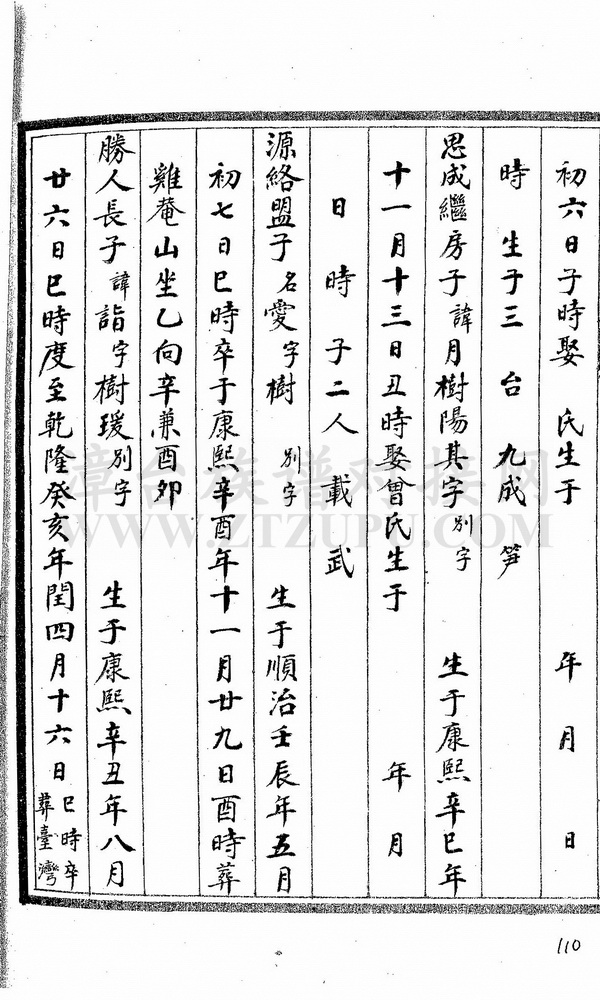 初六日子時娶 氏生于 年 月 日
時 生子三 台 九成 笋
思成繼房子諱月樹陽其字別字 生于康熙辛巳年
十一月十三日丑時娶曾氏生于 年 月
日 時 子二人 載 武
源絡盟子名愛字樹 別字 生于順治壬辰年五月
初七日巳時卒于康熙辛酉年十一月廿九日酉時葬
雞菴山坐乙向辛兼酉卯
勝人長子諱詣字樹瑗別字 生于康熙辛丑年八月
廿六日巳時度至乾隆癸亥年閏四月十六日巳時卒葬臺灣
漳台族谱对接网
WWW.ZTZUPU.COM
110